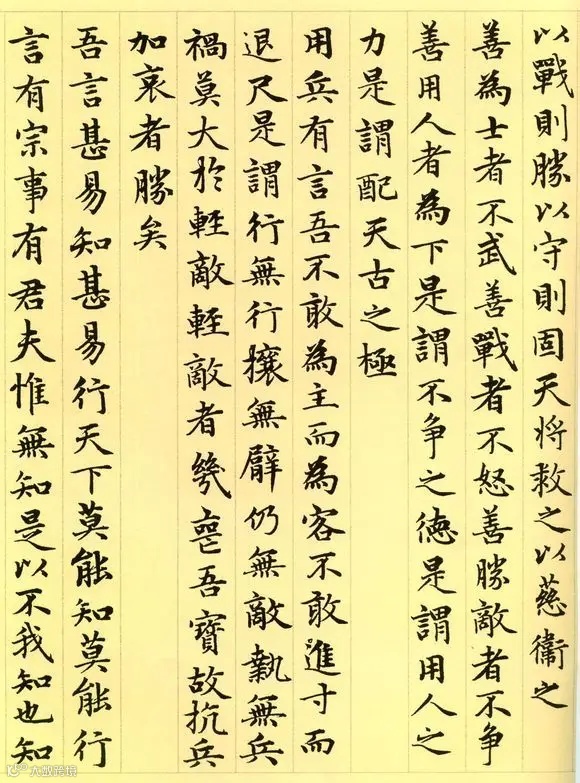 以戰則勝以守則固天将救之以慈衞之
善為士者不武善戰者不怒善勝敵者不争
善用人者為下是謂不争之徳是謂用人之
力是謂配天古之極
用兵有言吾不敢為主而為客不敢進寸而
退尺是謂行無行攘無臂仍無敵執無兵
禍莫大於輕敵輕敵者幾喪吾寶故抗兵
加哀者勝矣
吾言甚易知甚易行天下莫能知莫能行
言有宗事有君夫惟無知是以不我知也知
大数跨境